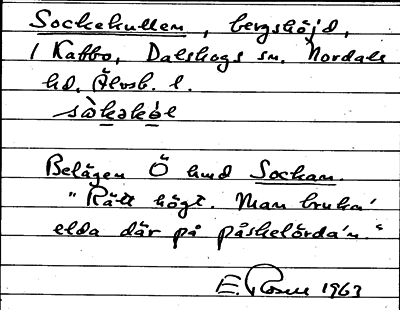 Sockekullen, bergshöjd,
i Kabbo, Dalskogs sn. Nordals
hd. Älvsb. l.
sòkəkòl
Belägen Ö emd Sockan.
"Rätt högt. Man bruka'
elda där på påskelörda'n."
E. Rosen 1963